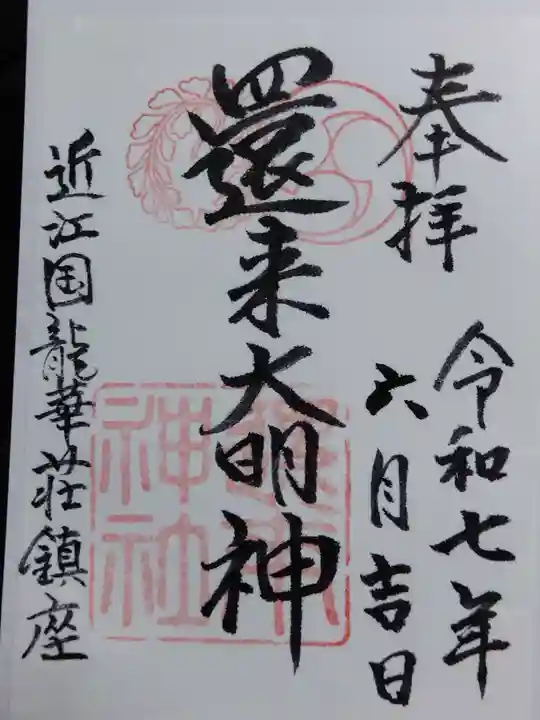 奉拝
令和七年
六月吉日
還来大明神
還来神社
近江国龍華荘鎮座